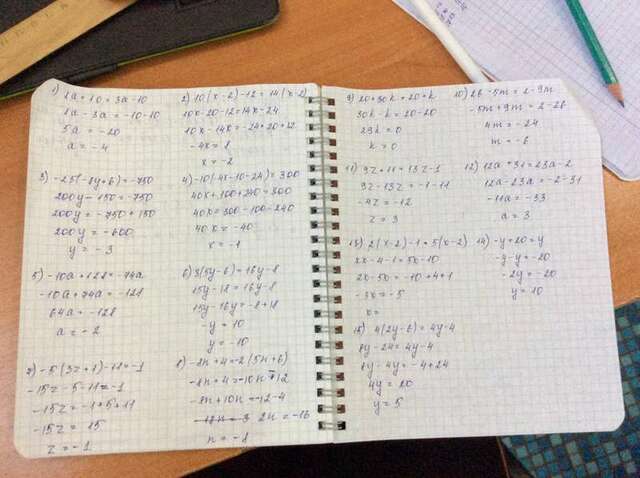 1) 8a+10=3a-10
8a-3a=-10-10
5a=-20
a=-4
2) 10(x-2)-12=14(x-2)
10x-20-12=14x-28
10x-14x=-28+20+12
-4x=8
x=-2
3) -25(-8y+6)=-750
200y-150=-750
200y=-750+150
200y=-600
y=-3
4) -10(-4x-10-24)=300
40x+100+240=300
40x=300-100-240
40x=-40
x=-1
5) -10a+128=-74a
-10a+74a=-128
64a=-128
a=-2
6) 3(5y-6)=16y-8
15y-18=16y-8
15y-16y=-8+18
-y=10
y=-10
7) -5(3z+1)-11=-1
-15z-5-11=-1
-15z=-1+5+11
-15z=15
z=-1
8) -8n+4=-2(5n+6)
-8n+4=-10n-12
-8n+10n=-12-4
2n=-16
n=-8
9) 20+30k=20+k
30k-k=20-20
29k=0
k=0
10) 26-5m=2-9m
-5m+9m=2-26
4m=-24
m=-6
11) 9z+11=13z-1
9z-13z=-1-11
-4z=-12
z=3
12) 12a+31=23a-2
12a-23a=-2-31
-11a=-33
a=3
13) 2(x-2)-1=5(x-2)
2x-4-1=5x-10
2x-5x=-10+4+1
-3x=-5
x=
14) -y+20=y
-y-y=-20
-2y=-20
y=10
15) 4(2y-6)=4y-4
8y-24=4y-4
8y-4y=-4+24
4y=20
y=5